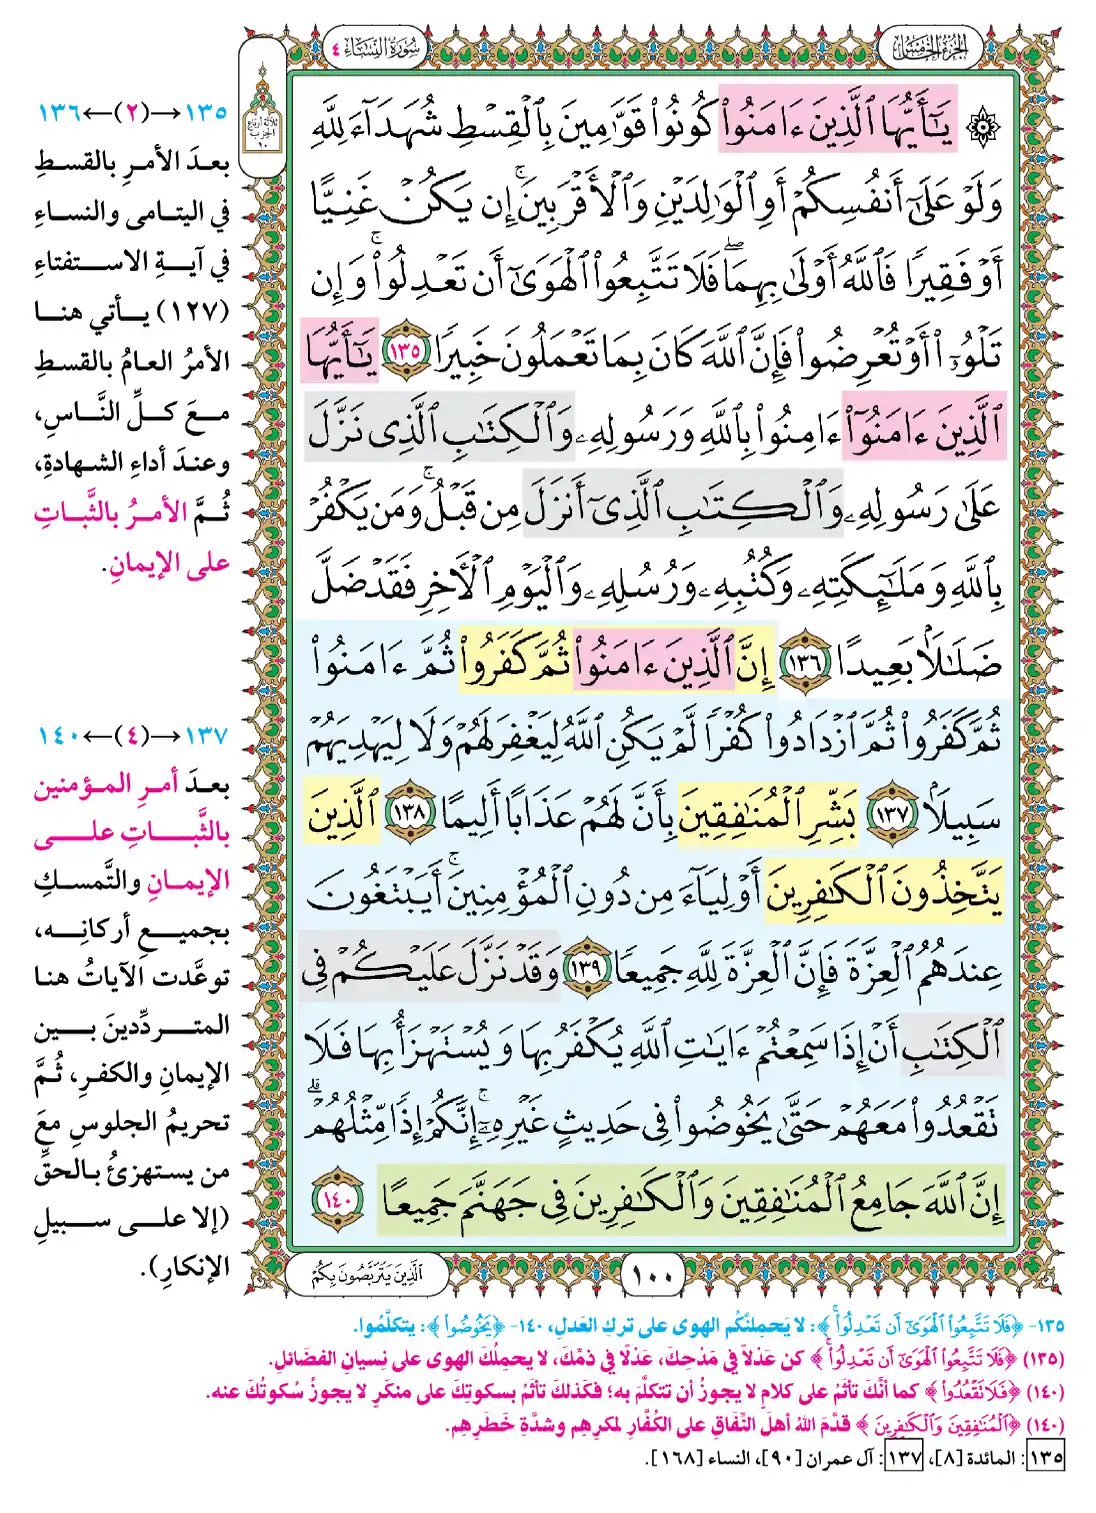 الجزء الخامس
سورة النساء ٤
ثلاثة أرباع
الحزب
١٠
۞ يَٰٓأَيُّهَا ٱلَّذِينَ ءَامَنُوا۟ كُونُوا۟ قَوَّٰمِينَ بِٱلْقِسْطِ شُهَدَآءَ لِلَّهِ
وَلَوْ عَلَىٰٓ أَنفُسِكُمْ أَوِ ٱلْوَٰلِدَيْنِ وَٱلْأَقْرَبِينَ ۚ إِن يَكُنْ غَنِيًّا
أَوْ فَقِيرًا فَٱللَّهُ أَوْلَىٰ بِهِمَا ۖ فَلَا تَتَّبِعُوا۟ ٱلْهَوَىٰٓ أَن تَعْدِلُوا۟ ۚ وَإِن
تَلْوُۥٓا۟ أَوْ تُعْرِضُوا۟ فَإِنَّ ٱللَّهَ كَانَ بِمَا تَعْمَلُونَ خَبِيرًا ١٣٥ يَٰٓأَيُّهَا
ٱلَّذِينَ ءَامَنُوٓا۟ ءَامِنُوا۟ بِٱللَّهِ وَرَسُولِهِۦ وَٱلْكِتَٰبِ ٱلَّذِى نَزَّلَ
عَلَىٰ رَسُولِهِۦ وَٱلْكِتَٰبِ ٱلَّذِىٓ أَنزَلَ مِن قَبْلُ ۚ وَمَن يَكْفُرْ
بِٱللَّهِ وَمَلَٰٓئِكَتِهِۦ وَكُتُبِهِۦ وَرُسُلِهِۦ وَٱلْيَوْمِ ٱلْءَاخِرِ فَقَدْ ضَلَّ
ضَلَٰلًۢا بَعِيدًا ١٣٦ إِنَّ ٱلَّذِينَ ءَامَنُوا۟ ثُمَّ كَفَرُوا۟ ثُمَّ ءَامَنُوا۟
ثُمَّ كَفَرُوا۟ ثُمَّ ٱزْدَادُوا۟ كُفْرًا لَّمْ يَكُنِ ٱللَّهُ لِيَغْفِرَ لَهُمْ وَلَا لِيَهْدِيَهُمْ
سَبِيلًۢا ١٣٧ بَشِّرِ ٱلْمُنَٰفِقِينَ بِأَنَّ لَهُمْ عَذَابًا أَلِيمًا ١٣٨ ٱلَّذِينَ
يَتَّخِذُونَ ٱلْكَٰفِرِينَ أَوْلِيَآءَ مِن دُونِ ٱلْمُؤْمِنِينَ ۚ أَيَبْتَغُونَ
عِندَهُمُ ٱلْعِزَّةَ فَإِنَّ ٱلْعِزَّةَ لِلَّهِ جَمِيعًا ١٣٩ وَقَدْ نَزَّلَ عَلَيْكُمْ فِى
ٱلْكِتَٰبِ أَنْ إِذَا سَمِعْتُمْ ءَايَٰتِ ٱللَّهِ يُكْفَرُ بِهَا وَيُسْتَهْزَأُ بِهَا فَلَا
تَقْعُدُوا۟ مَعَهُمْ حَتَّىٰ يَخُوضُوا۟ فِى حَدِيثٍ غَيْرِهِۦٓ ۚ إِنَّكُمْ إِذًا مِّثْلُهُمْ ۗ
إِنَّ ٱللَّهَ جَامِعُ ٱلْمُنَٰفِقِينَ وَٱلْكَٰفِرِينَ فِى جَهَنَّمَ جَمِيعًا ١٤٠
١٠٠
ٱلَّذِينَ يَتَرَبَّصُونَ بِكُمْ
١٣٥→(٢)←١٣٦
بعدَ الأمرِ بالقسطِ
في اليتامى والنساءِ
في آيةِ الاستفتاءِ
(١٢٧) يأتي هنا
الأمرُ العامُ بالقسطِ
معَ كلِّ النَّاسِ،
وعندَ أداءِ الشهادةِ،
ثُمَّ الأمرُ بالثَّباتِ
على الإيمانِ.
١٣٧→(٤)←١٤٠
بعدَ أمرِ المؤمنين
بالثَّباتِ على
الإيمانِ والتَّمسكِ
بجميعِ أركانِه،
توعَّدت الآياتُ هنا
المتردِّدينَ بين
الإيمانِ والكفرِ، ثُمَّ
تحريمُ الجلوسِ معَ
من يستهزئُ بالحقِّ
(إلا على سبيلِ
الإنكارِ).
١٣٥- ﴿فَلَا تَتَّبِعُوا۟ ٱلْهَوَىٰٓ أَن تَعْدِلُوا۟ ۚ﴾: لا يَحمِلنَّكُم الهوى على تركِ العَدلِ، ١٤٠- ﴿يَخُوضُوا۟﴾: يتكلَّمُوا.
(١٣٥) ﴿فَلَا تَتَّبِعُوا۟ ٱلْهَوَىٰٓ أَن تَعْدِلُوا۟ ۚ﴾ كن عَدْلاً في مَدْحِكَ، عَدْلًا في ذمِّكَ، لا يحملُكَ الهوى على نِسيانِ الفضَائلِ.
(١٤٠) ﴿فَلَا تَقْعُدُوا۟﴾ كما أنَّكَ تأثَمُ على كلامٍ لا يجوزُ أن تتكلَّمَ به؛ فكذلكَ تأثمُ بسكوتِكَ على منكَرٍ لا يجوزُ سُكوتُكَ عنه.
(١٤٠) ﴿ٱلْمُنَٰفِقِينَ وَٱلْكَٰفِرِينَ﴾ قدَّمَ اللهُ أهلَ النِّفَاقِ على الكُفَّارِ لمكرِهِم وشدَّةِ خَطَرِهِم.
١٣٥: المائدة [٨]، ١٣٧: آل عمران [٩٠]، النساء [١٦٨].